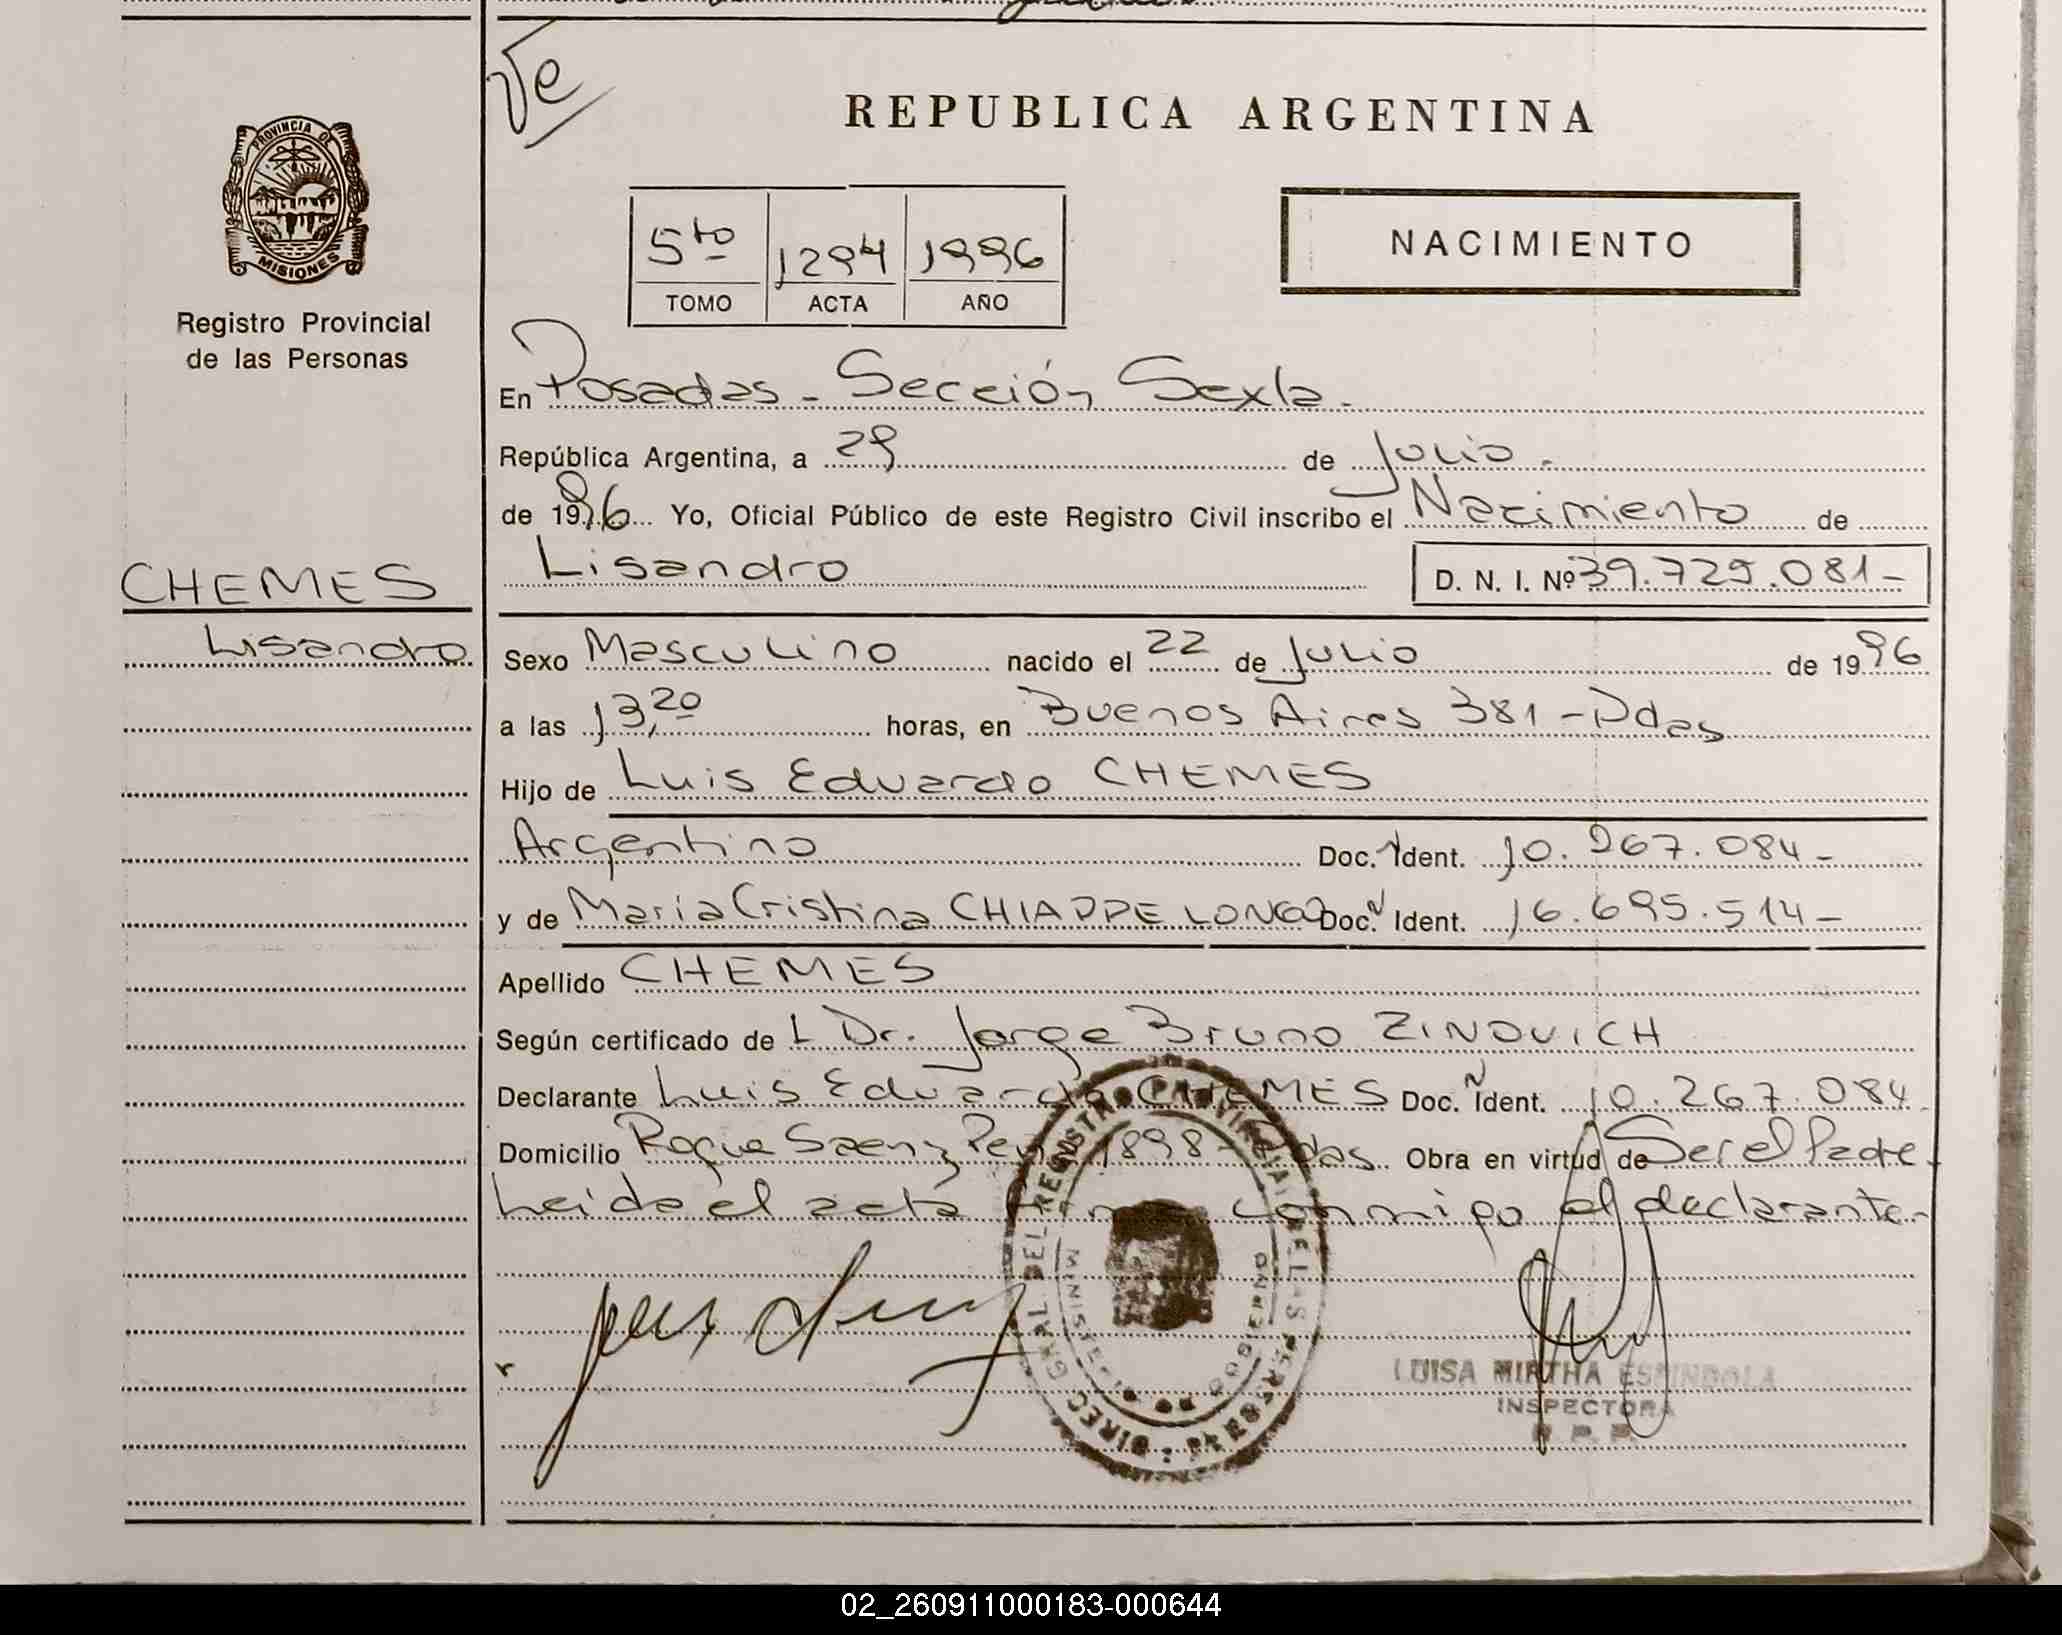 REPUBLICA ARGENTINA
PROVINCIA DE
MISIONES
Registro Provincial
de las Personas
5to 1294 1996
TOMO ACTA AÑO
NACIMIENTO
En Posadas - Sección Sexta.
República Argentina, a 29 de Julio.
de 1996 Yo, Oficial Público de este Registro Civil inscribo el Nacimiento de
Lisandro D. N. I. Nº 39.729.081-
CHEMES
Lisandro
Sexo Masculino nacido el 22 de Julio de 1996
a las 13,20 horas, en Buenos Aires 381 - Pdas
Hijo de Luis Eduardo CHEMES
Argentino Doc. Ident. 10.267.084-
y de María Cristina CHIAPPE LONGO Doc. Ident. 16.695.514-
Apellido CHEMES
Según certificado de L Dr. Jorge Bruno ZINOVICH
Declarante Luis Eduardo CHEMES Doc. N Ident. 10.267.084
Domicilio Roque Saenz Peña 1898 - Pdas. Obra en virtud de Ser el Padre
Leida el acta firma conmigo el declarante-
DIREC GRAL DEL REGISTRO PROVINCIAL DE LAS PERSONAS
MINISTERIO DE GOBIERNO
LUISA MIRTHA ESPINDOLA
INSPECTORA
R. P. P.
02_260911000183-000644